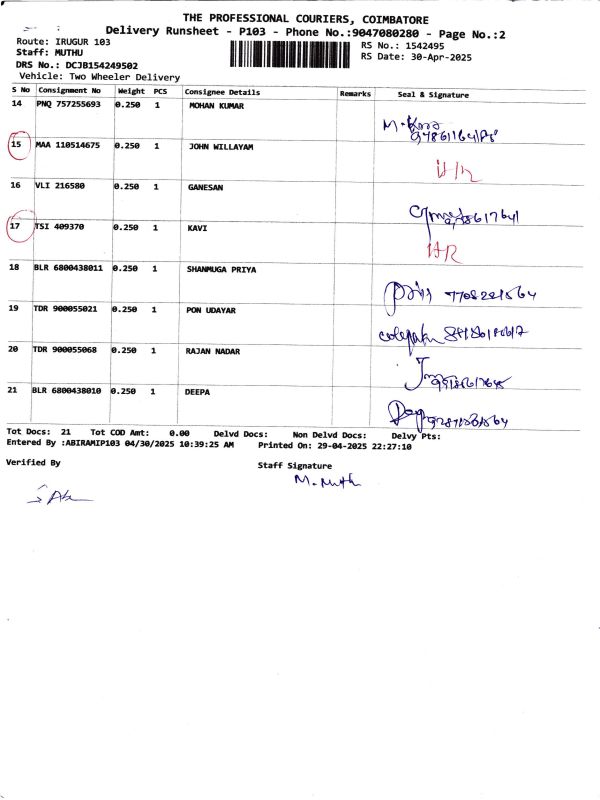 THE PROFESSIONAL COURIERS, COIMBATORE
Delivery Runsheet - P103 - Phone No.:9047080280 - Page No.:2
Route: IRUGUR 103
RS No.: 1542495
Staff: MUTHU
RS Date: 30-Apr-2025
DRS No.: DCJB154249502
Vehicle: Two Wheeler Delivery
S No Consignment No Weight PCS Consignee Details Remarks Seal & Signature
14 PNQ 757255693 0.250 1 MOHAN KUMAR
15 MAA 110514675 0.250 1 JOHN WILLAYAM
16 VLI 216580 0.250 1 GANESAN
17 TSI 409370 0.250 1 KAVI
18 BLR 6800438011 0.250 1 SHANMUGA PRIYA
19 TDR 900055021 0.250 1 PON UDAYAR
20 TDR 900055068 0.250 1 RAJAN NADAR
21 BLR 6800438010 0.250 1 DEEPA
Tot Docs: 21 Tot COD Amt: 0.00 Delvd Docs: Non Delvd Docs: Delvy Pts:
Entered By :ABIRAMIP103 04/30/2025 10:39:25 AM Printed On: 29-04-2025 22:27:10
Verified By
Staff Signature
M. Muth